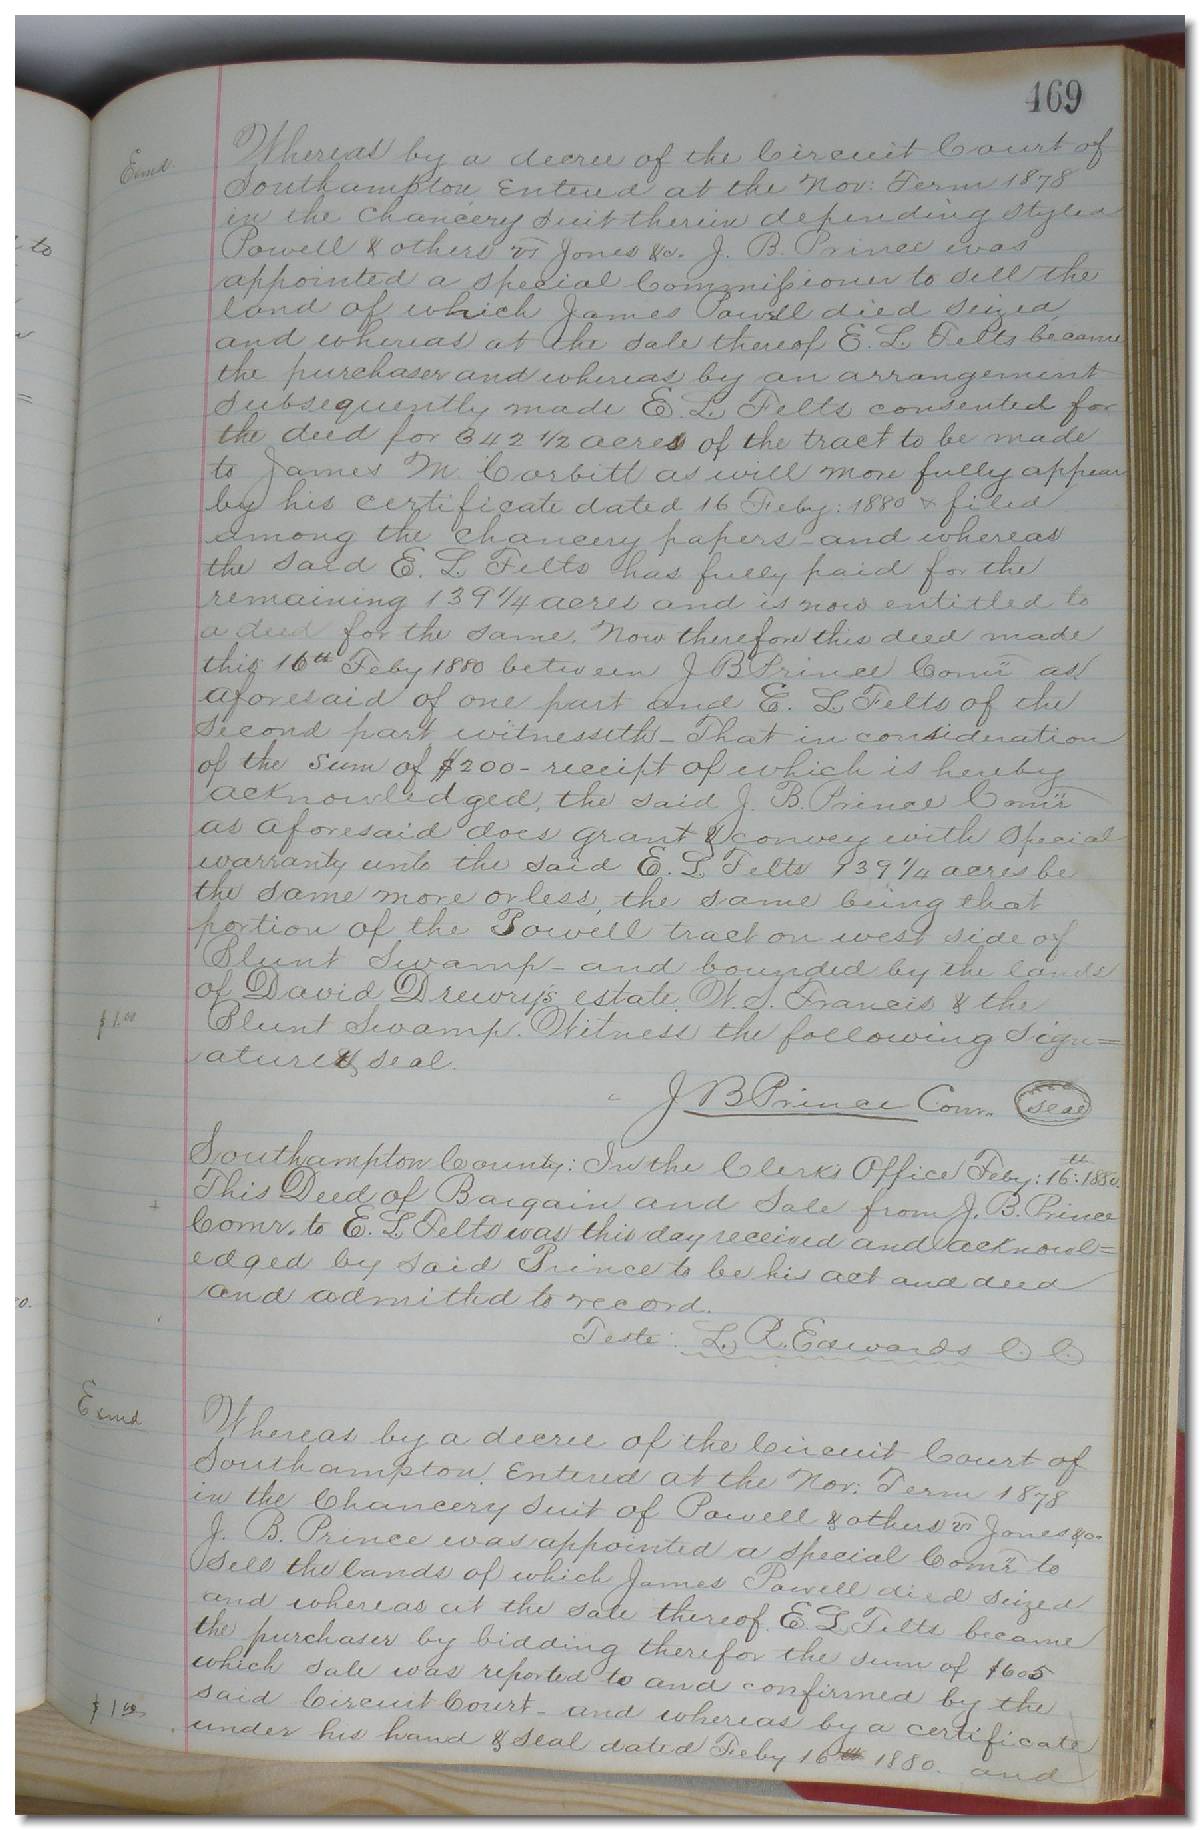 469
Exmd
Whereas by a decree of the Circuit Court of
Southampton Entered at the Nov: Term 1878
in the Chancery Suit therein depending styled
Powell & others vs Jones &c. J. B. Prince was
appointed a special Commissioner to sell the
land of which James Powell died seized,
and whereas at the sale thereof E. L Felts became
the purchaser and whereas by an arrangement
subsequently made E. L. Felts consented for
the deed for 342 1/2 acres of the tract to be made
to James M. Corbitt as will more fully appear
by his certificate dated 16 Feby: 1880 & filed
among the chancery papers - and whereas
the said E. L. Felts has fully paid for the
remaining 139 1/4 acres and is now entitled to
a deed for the same. Now therefore this deed made
this 16th Feby 1880 between J B Prince Comr as
aforesaid of one part and E. L Felts of the
second part witnesseth - That in consideration
of the sum of $200 - receipt of which is hereby
acknowledged, the said J. B. Prince Comr
as aforesaid does grant & convey with special
warranty unto the said E. L Felts 139 1/4 acres be
the same more or less, the same being that
portion of the Powell tract on west side of
Blunt Swamp - and bounded by the lands
of David Drewry's estate, W. S. Francis & the
$1.00
Blunt Swamp. Witness the following sign=
ature & seal.
J B Prince Comr. seal
Southampton County: In the Clerks Office Feby: 16th: 1880.
This Deed of Bargain and Sale from J. B. Prince
Comr. to E. L Felts was this day received and acknowl=
edged by said Prince to be his act and deed
and admitted to record.
Teste: L. R. Edwards C. C.
Exmd
Whereas by a decree of the Circuit Court of
Southampton Entered at the Nov: Term 1878
in the Chancery suit of Powell & others vs Jones &c.
J. B. Prince was appointed a special Comr to
sell the lands of which James Powell died seized
and whereas at the sale thereof E. L Felts became
the purchaser by bidding therefor the sum of $605
which sale was reported to and confirmed by the
said Circuit Court - and whereas by a certificate
$1.00
under his hand & seal dated Feby 16th 1880. and